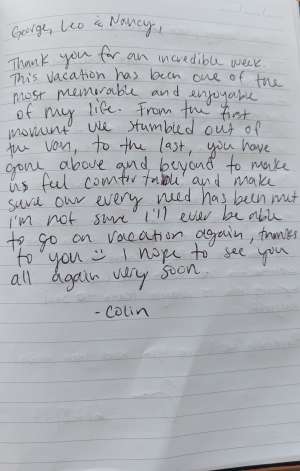 George, Leo & Nancy,
Thank you for an incredible week.
This vacation has been one of the
most memorable and enjoyable
of my life. From the first
moment we stumbled out of
the van, to the last, you have
gone above and beyond to make
us feel comfortable and make
sure our every need has been met
I'm not sure I'll ever be able
to go on vacation again, thanks
to you :) I hope to see you
all again very soon.
- Colin